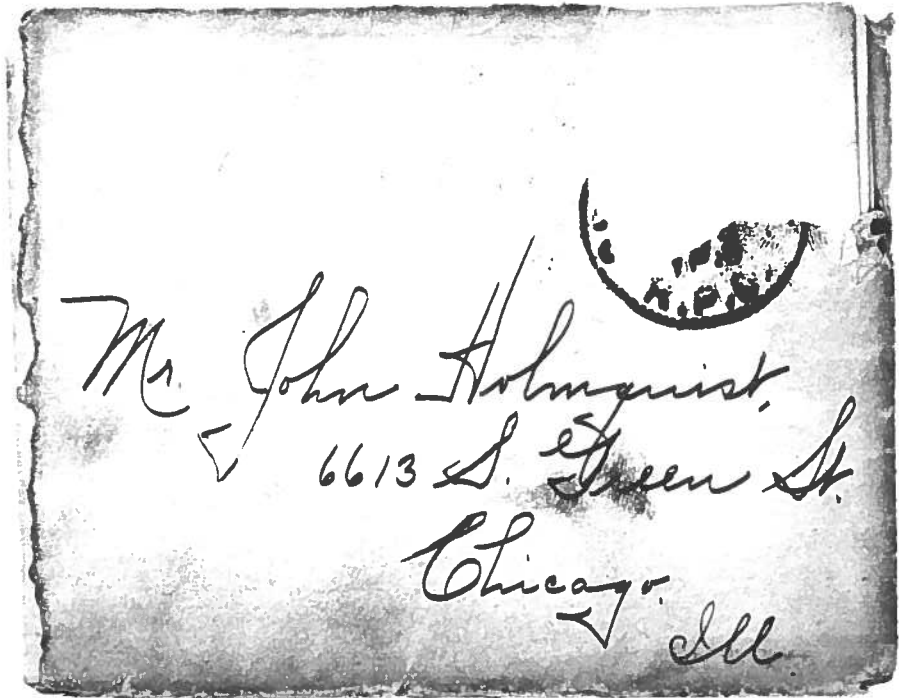 Mr. John Holmquist.
6613 S. Green St.
Chicago.
Ill